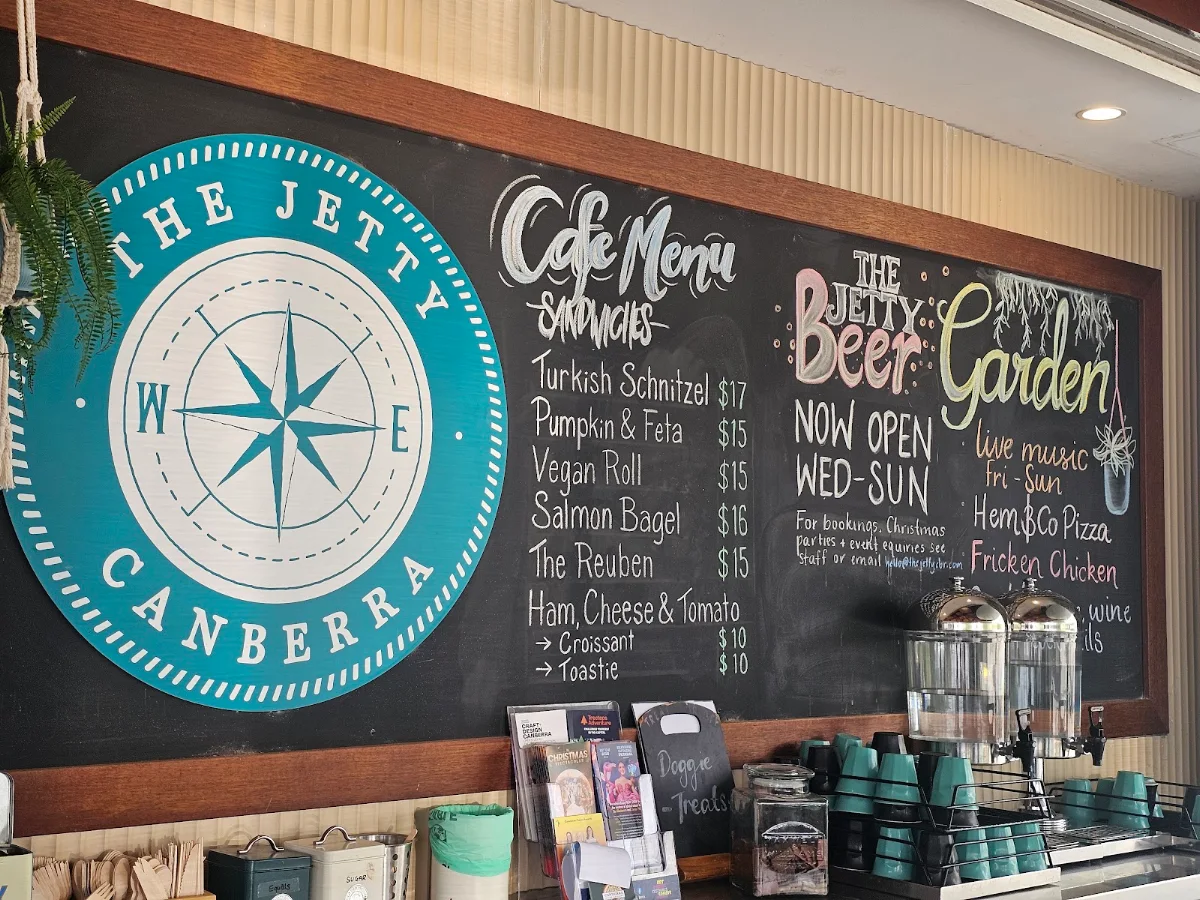 THE JETTY
W E
CANBERRA
Cafe Menu
SANDWICHES
Turkish Schnitzel $17
Pumpkin & Feta $15
Vegan Roll $15
Salmon Bagel $16
The Reuben $15
Ham, Cheese & Tomato
→ Croissant $10
→ Toastie $10
THE
JETTY
Beer Garden
NOW OPEN
WED-SUN
For bookings, Christmas
parties + event equiries see
staff or email hello@thejettycbr.com
live music
fri - sun
Hem&Co Pizza
Fricken Chicken
wine
CRAFT+
DESIGN
CANBERRA
Treetops
Adventure
CHRISTMAS
Doggie
-Treats
Equals
SUGAR